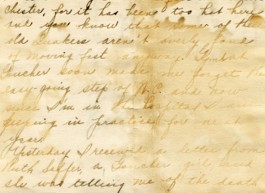 Chester for it has been too hot here
and you know that some of the
old Quakers aren't overly fond
of moving fast anyway.
soon made me forget the
easy-going step of and now
when I'm in the hospital I
in practice for me it
years.
Yesterday I received a letter from
Ruth a Quaker and
she was telling me of the death